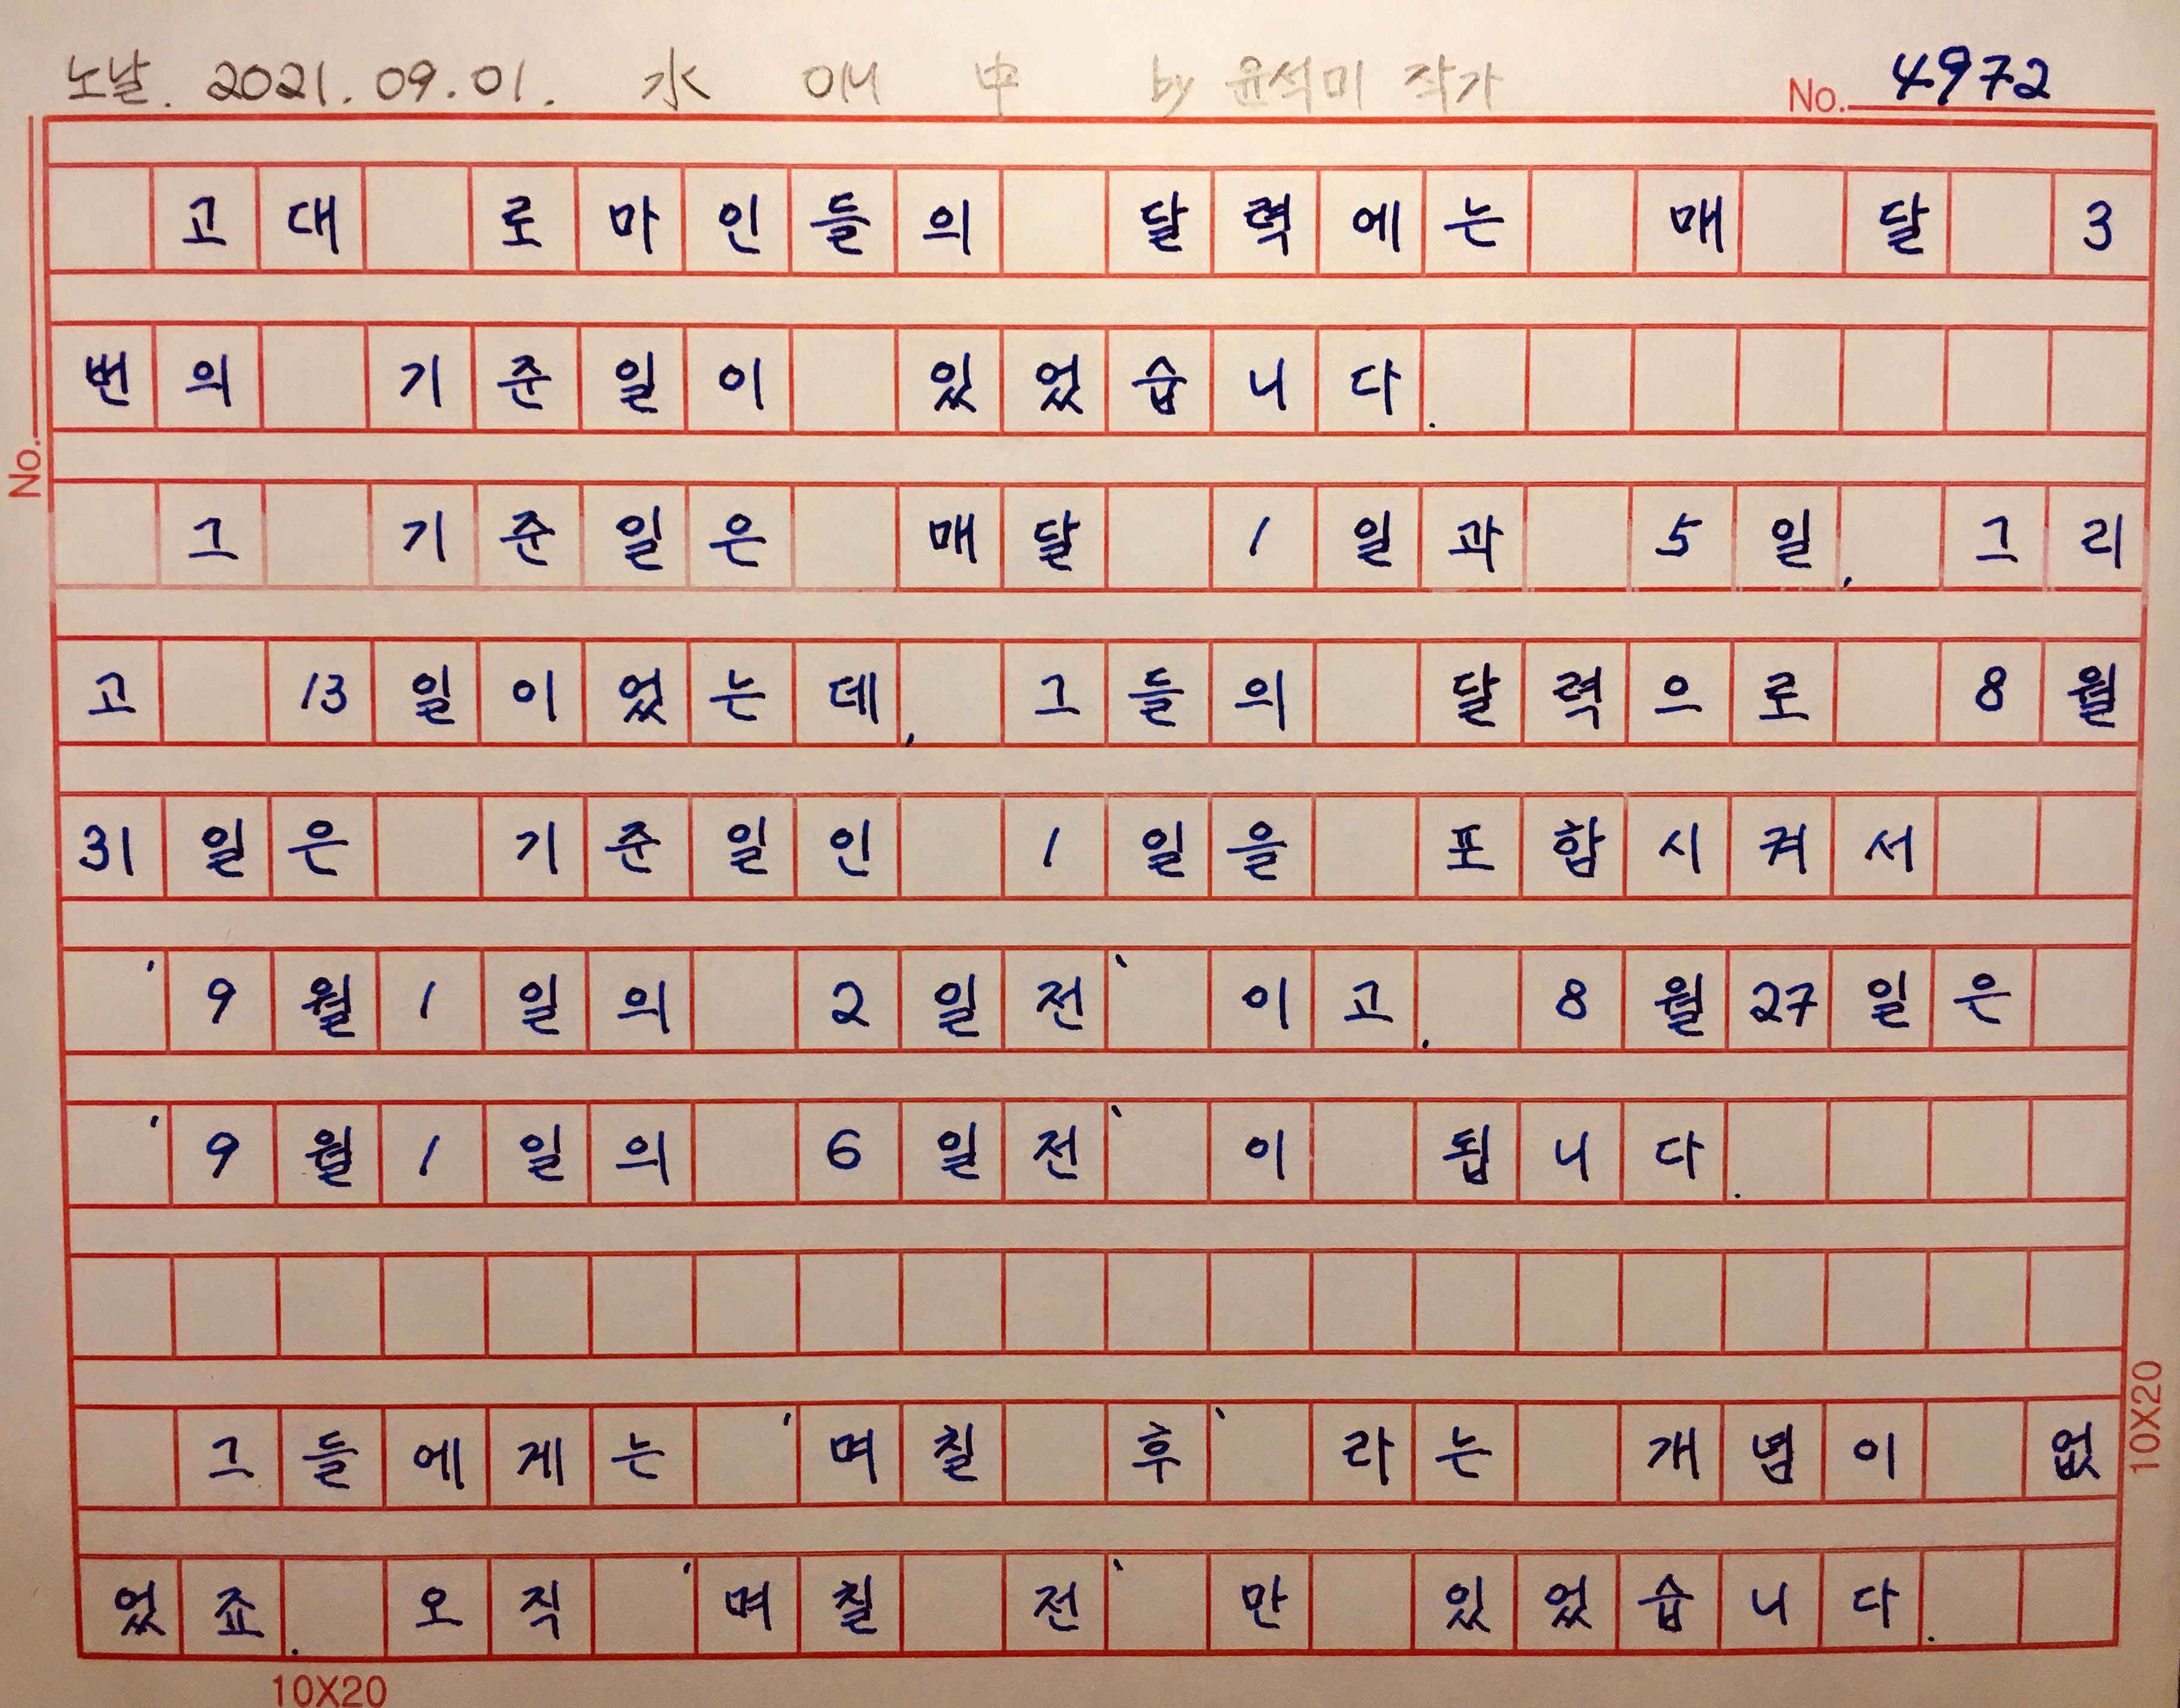 노날. 2021.09.01. 水 애 中 by 윤석미 작가
No. 4972
고대 로마인들의 달력에는 매 달 3
번의 기준일이 있었습니다.
No.
그 기준일은 매달 1일과 5일, 그리
고 13일이었는데, 그들의 달력으로 8월
31일은 기준일인 1일을 포함시켜서
'9월1일의 2일전' 이고. 8월27일은
'9월1일의 6일전' 이 됩니다.
그들에게는 '며칠 후' 라는 개념이 없
었죠. 오직 '며칠 전' 만 있었습니다.
10X20
10X20